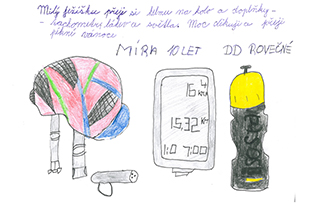 Milý Ježíšku přeji si helmu na kolo a doplňky -
- tachometr, láhev a světlo. Moc děkuji a přeji
pěkné vánoce
MÍRA 10 LET DD ROVEČNÉ
4
16 km/h
15,32 km
1:0 7:00